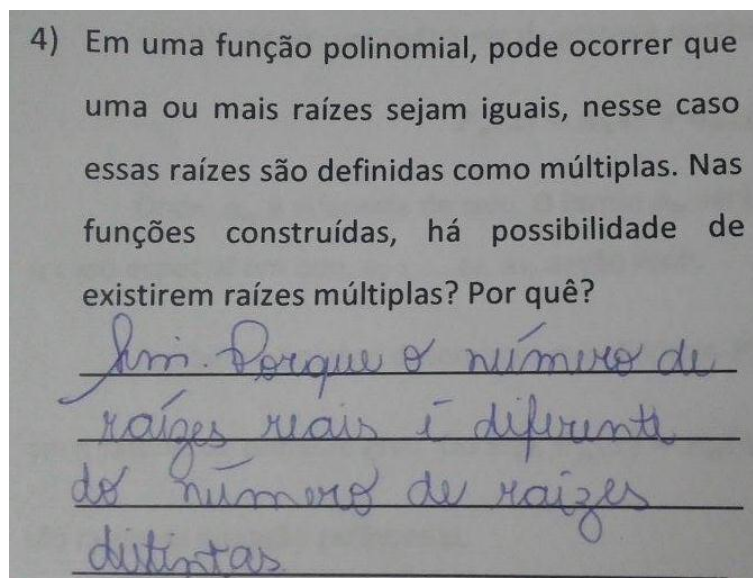 4) Em uma função polinomial, pode ocorrer que
uma ou mais raízes sejam iguais, nesse caso
essas raízes são definidas como múltiplas. Nas
funções construídas, há possibilidade de
existirem raízes múltiplas? Por quê?
Sim. Porque o número de
raízes reais é diferente
do número de raizes
distintas